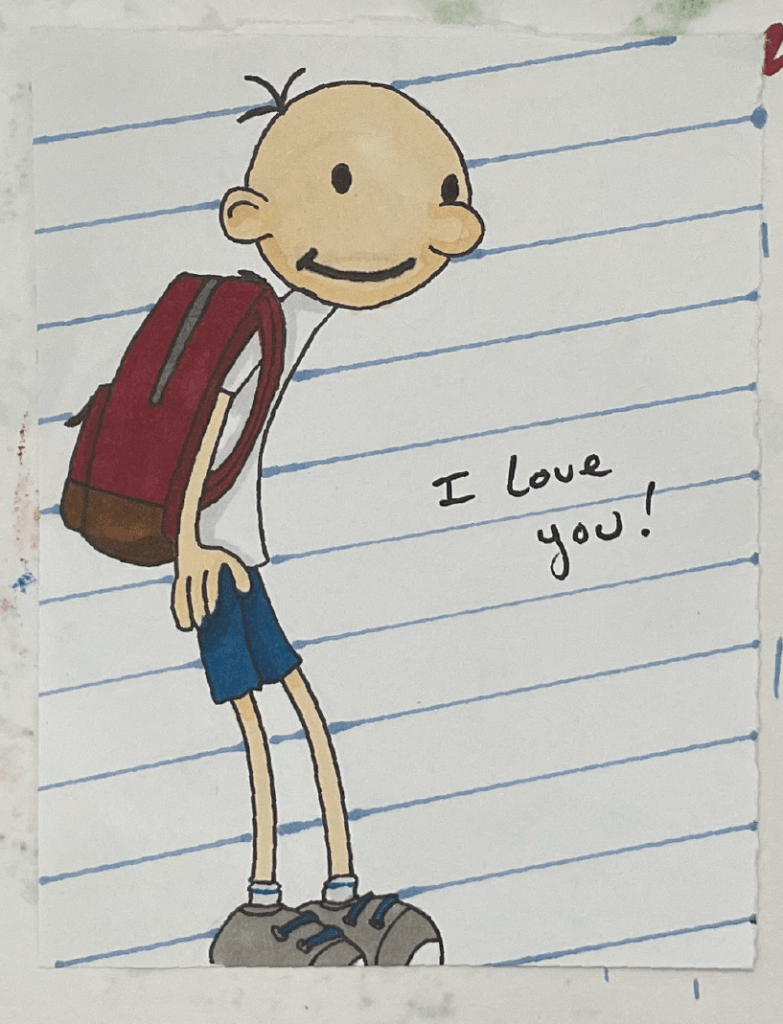 I love
you!